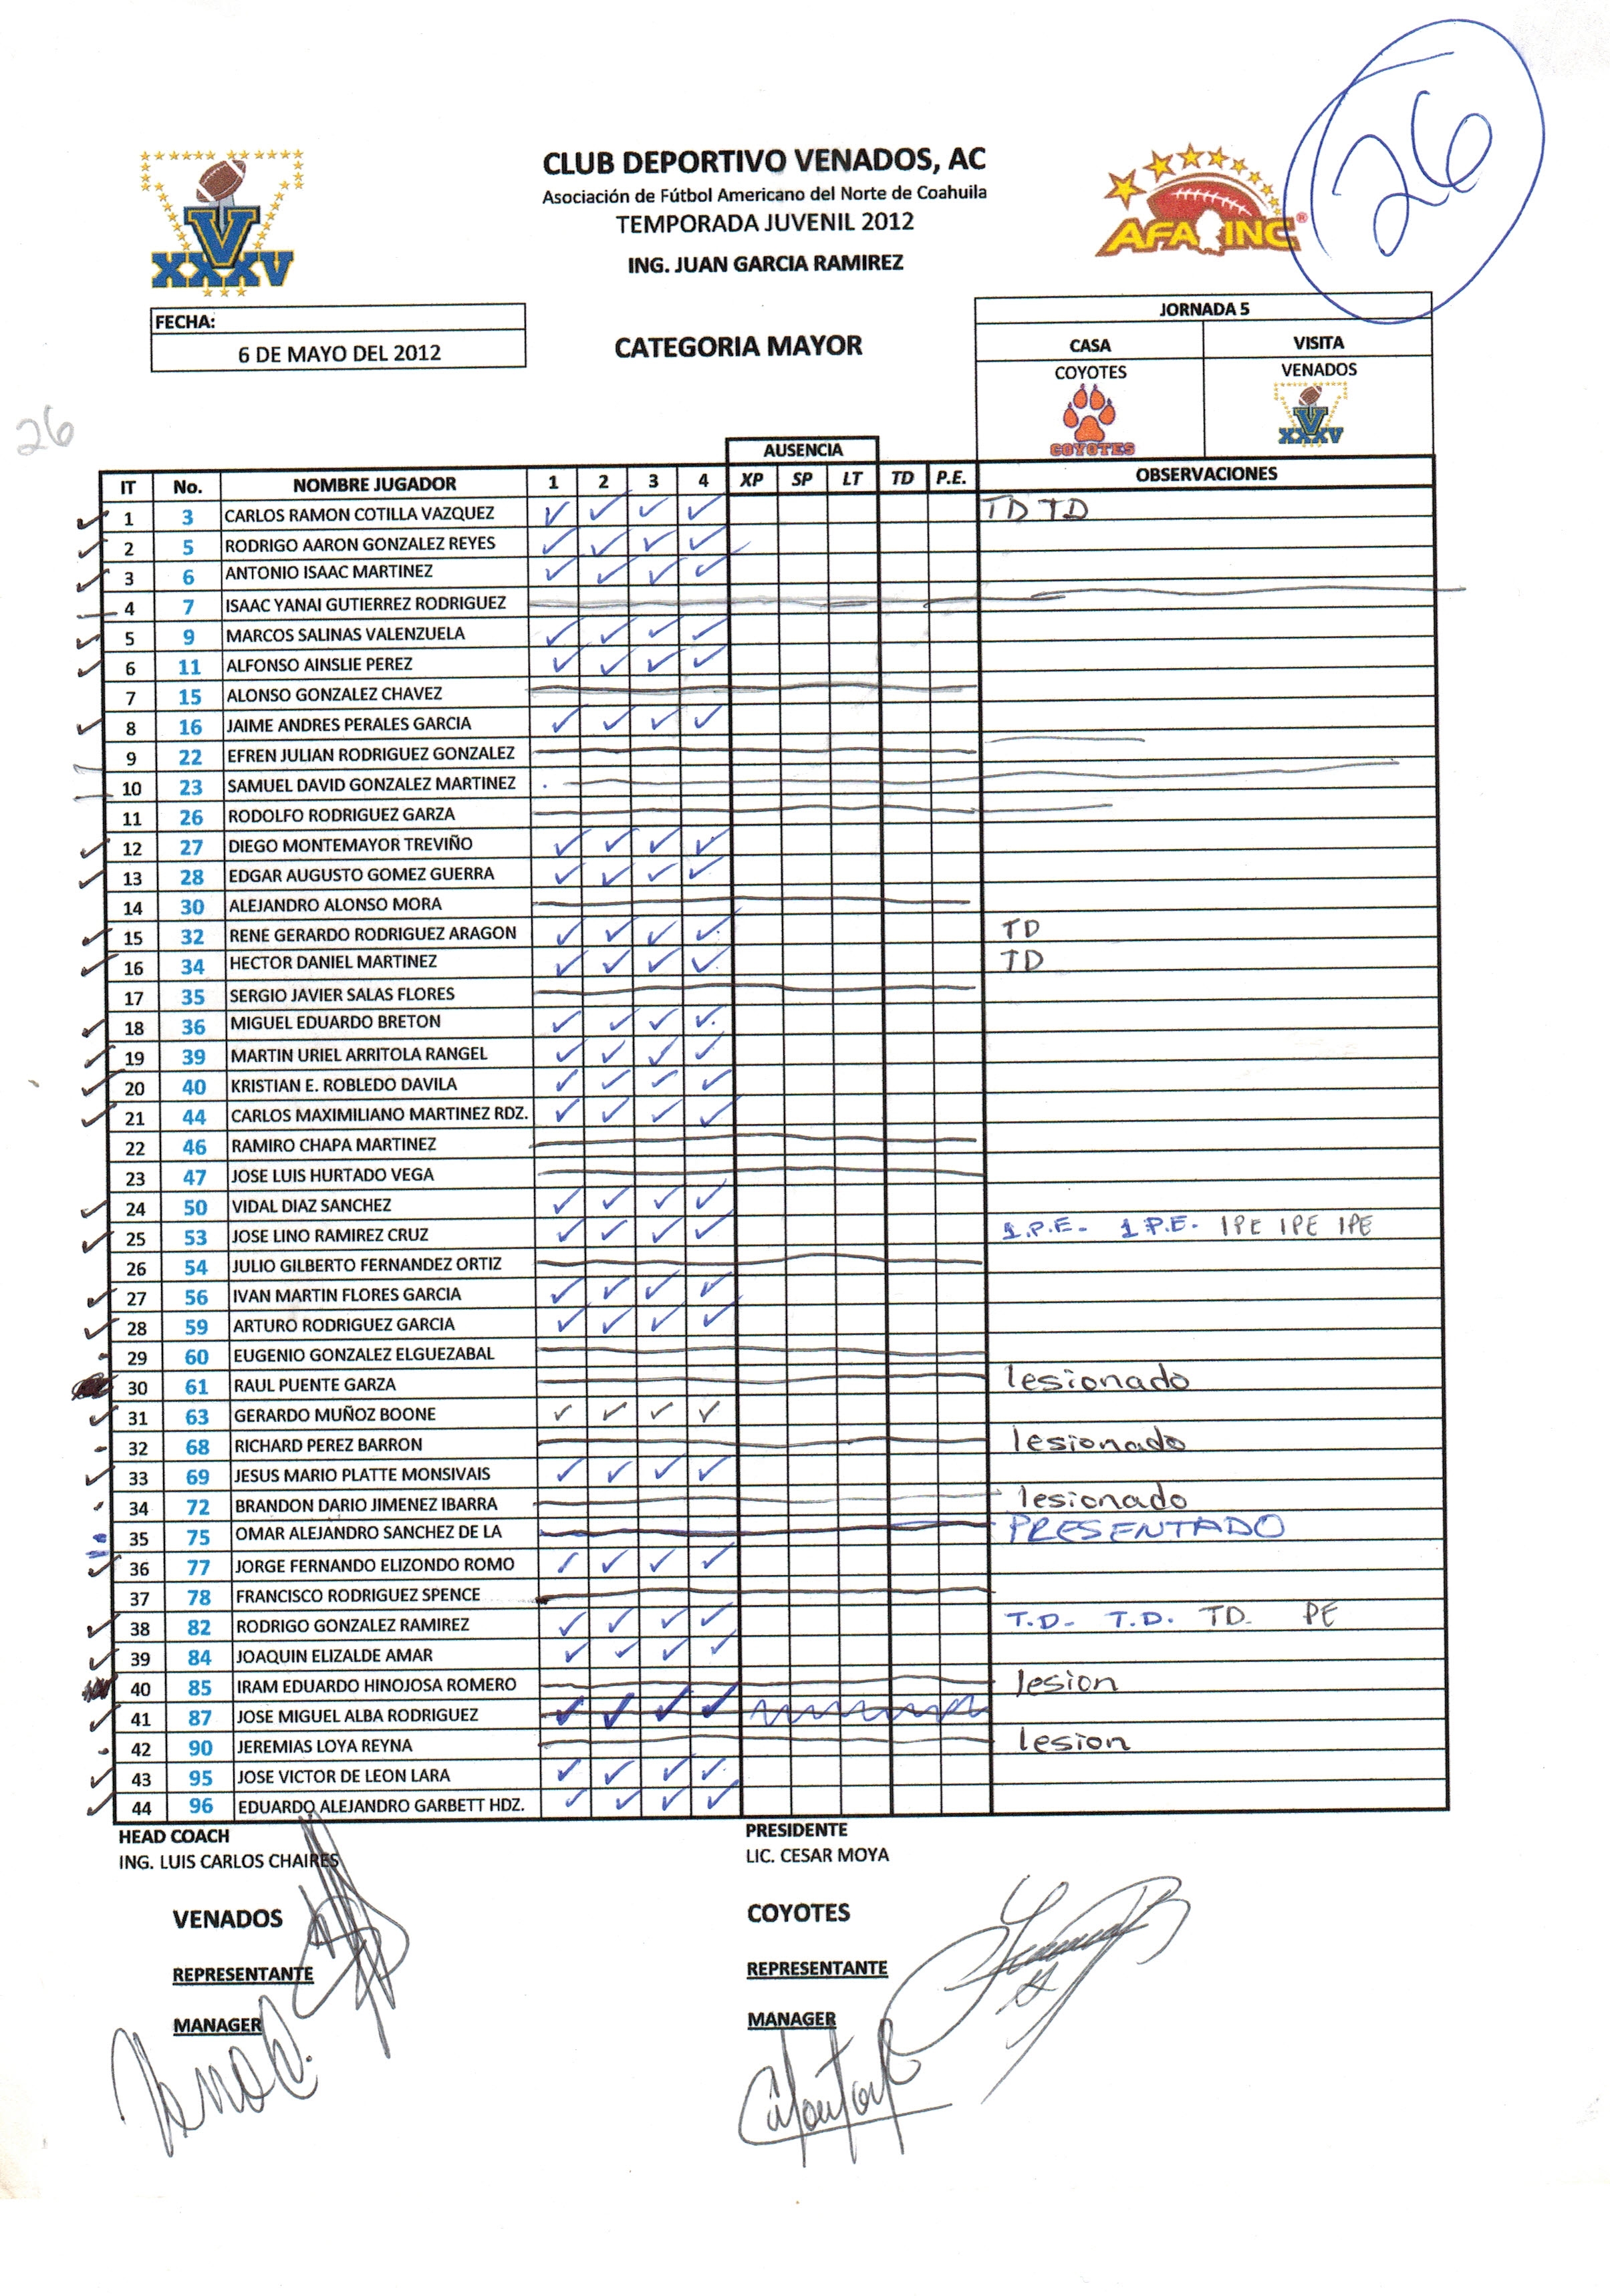 26
CLUB DEPORTIVO VENADOS, AC
Asociación de Fútbol Americano del Norte de Coahuila
TEMPORADA JUVENIL 2012
ING. JUAN GARCIA RAMIREZ
V
XXXV
AFA INC®
FECHA:
6 DE MAYO DEL 2012
CATEGORIA MAYOR
JORNADA 5
CASA VISITA
COYOTES VENADOS
COYOTES V XXXV
26
AUSENCIA
IT No. NOMBRE JUGADOR 1 2 3 4 XP SP LT TD P.E. OBSERVACIONES
1 3 CARLOS RAMON COTILLA VAZQUEZ ✓ ✓ ✓ ✓ TD TD
2 5 RODRIGO AARON GONZALEZ REYES ✓ ✓ ✓ ✓
3 6 ANTONIO ISAAC MARTINEZ ✓ ✓ ✓ ✓
4 7 ISAAC YANAI GUTIERREZ RODRIGUEZ
5 9 MARCOS SALINAS VALENZUELA ✓ ✓ ✓ ✓
6 11 ALFONSO AINSLIE PEREZ ✓ ✓ ✓ ✓
7 15 ALONSO GONZALEZ CHAVEZ
8 16 JAIME ANDRES PERALES GARCIA ✓ ✓ ✓ ✓
9 22 EFREN JULIAN RODRIGUEZ GONZALEZ
10 23 SAMUEL DAVID GONZALEZ MARTINEZ
11 26 RODOLFO RODRIGUEZ GARZA
12 27 DIEGO MONTEMAYOR TREVIÑO ✓ ✓ ✓ ✓
13 28 EDGAR AUGUSTO GOMEZ GUERRA ✓ ✓ ✓ ✓
14 30 ALEJANDRO ALONSO MORA
15 32 RENE GERARDO RODRIGUEZ ARAGON ✓ ✓ ✓ ✓ TD
16 34 HECTOR DANIEL MARTINEZ ✓ ✓ ✓ ✓ TD
17 35 SERGIO JAVIER SALAS FLORES
18 36 MIGUEL EDUARDO BRETON ✓ ✓ ✓ ✓
19 39 MARTIN URIEL ARRITOLA RANGEL ✓ ✓ ✓ ✓
20 40 KRISTIAN E. ROBLEDO DAVILA ✓ ✓ ✓ ✓
21 44 CARLOS MAXIMILIANO MARTINEZ RDZ. ✓ ✓ ✓ ✓
22 46 RAMIRO CHAPA MARTINEZ
23 47 JOSE LUIS HURTADO VEGA
24 50 VIDAL DIAZ SANCHEZ ✓ ✓ ✓ ✓
25 53 JOSE LINO RAMIREZ CRUZ ✓ ✓ ✓ ✓ 1.P.E- 1 P.E- 1PE 1PE 1PE
26 54 JULIO GILBERTO FERNANDEZ ORTIZ
27 56 IVAN MARTIN FLORES GARCIA ✓ ✓ ✓ ✓
28 59 ARTURO RODRIGUEZ GARCIA ✓ ✓ ✓ ✓
29 60 EUGENIO GONZALEZ ELGUEZABAL
30 61 RAUL PUENTE GARZA lesionado
31 63 GERARDO MUÑOZ BOONE ✓ ✓ ✓ ✓
32 68 RICHARD PEREZ BARRON lesionado
33 69 JESUS MARIO PLATTE MONSIVAIS ✓ ✓ ✓ ✓
34 72 BRANDON DARIO JIMENEZ IBARRA lesionado
35 75 OMAR ALEJANDRO SANCHEZ DE LA PRESENTADO
36 77 JORGE FERNANDO ELIZONDO ROMO ✓ ✓ ✓ ✓
37 78 FRANCISCO RODRIGUEZ SPENCE
38 82 RODRIGO GONZALEZ RAMIREZ ✓ ✓ ✓ ✓ T.D- T.D. TD- PE
39 84 JOAQUIN ELIZALDE AMAR ✓ ✓ ✓ ✓
40 85 IRAM EDUARDO HINOJOSA ROMERO lesion
41 87 JOSE MIGUEL ALBA RODRIGUEZ ✓ ✓ ✓ ✓
42 90 JEREMIAS LOYA REYNA lesion
43 95 JOSE VICTOR DE LEON LARA ✓ ✓ ✓ ✓
44 96 EDUARDO ALEJANDRO GARBETT HDZ. ✓ ✓ ✓ ✓
HEAD COACH PRESIDENTE
ING. LUIS CARLOS CHAIRES LIC. CESAR MOYA
VENADOS COYOTES
REPRESENTANTE REPRESENTANTE
MANAGER MANAGER